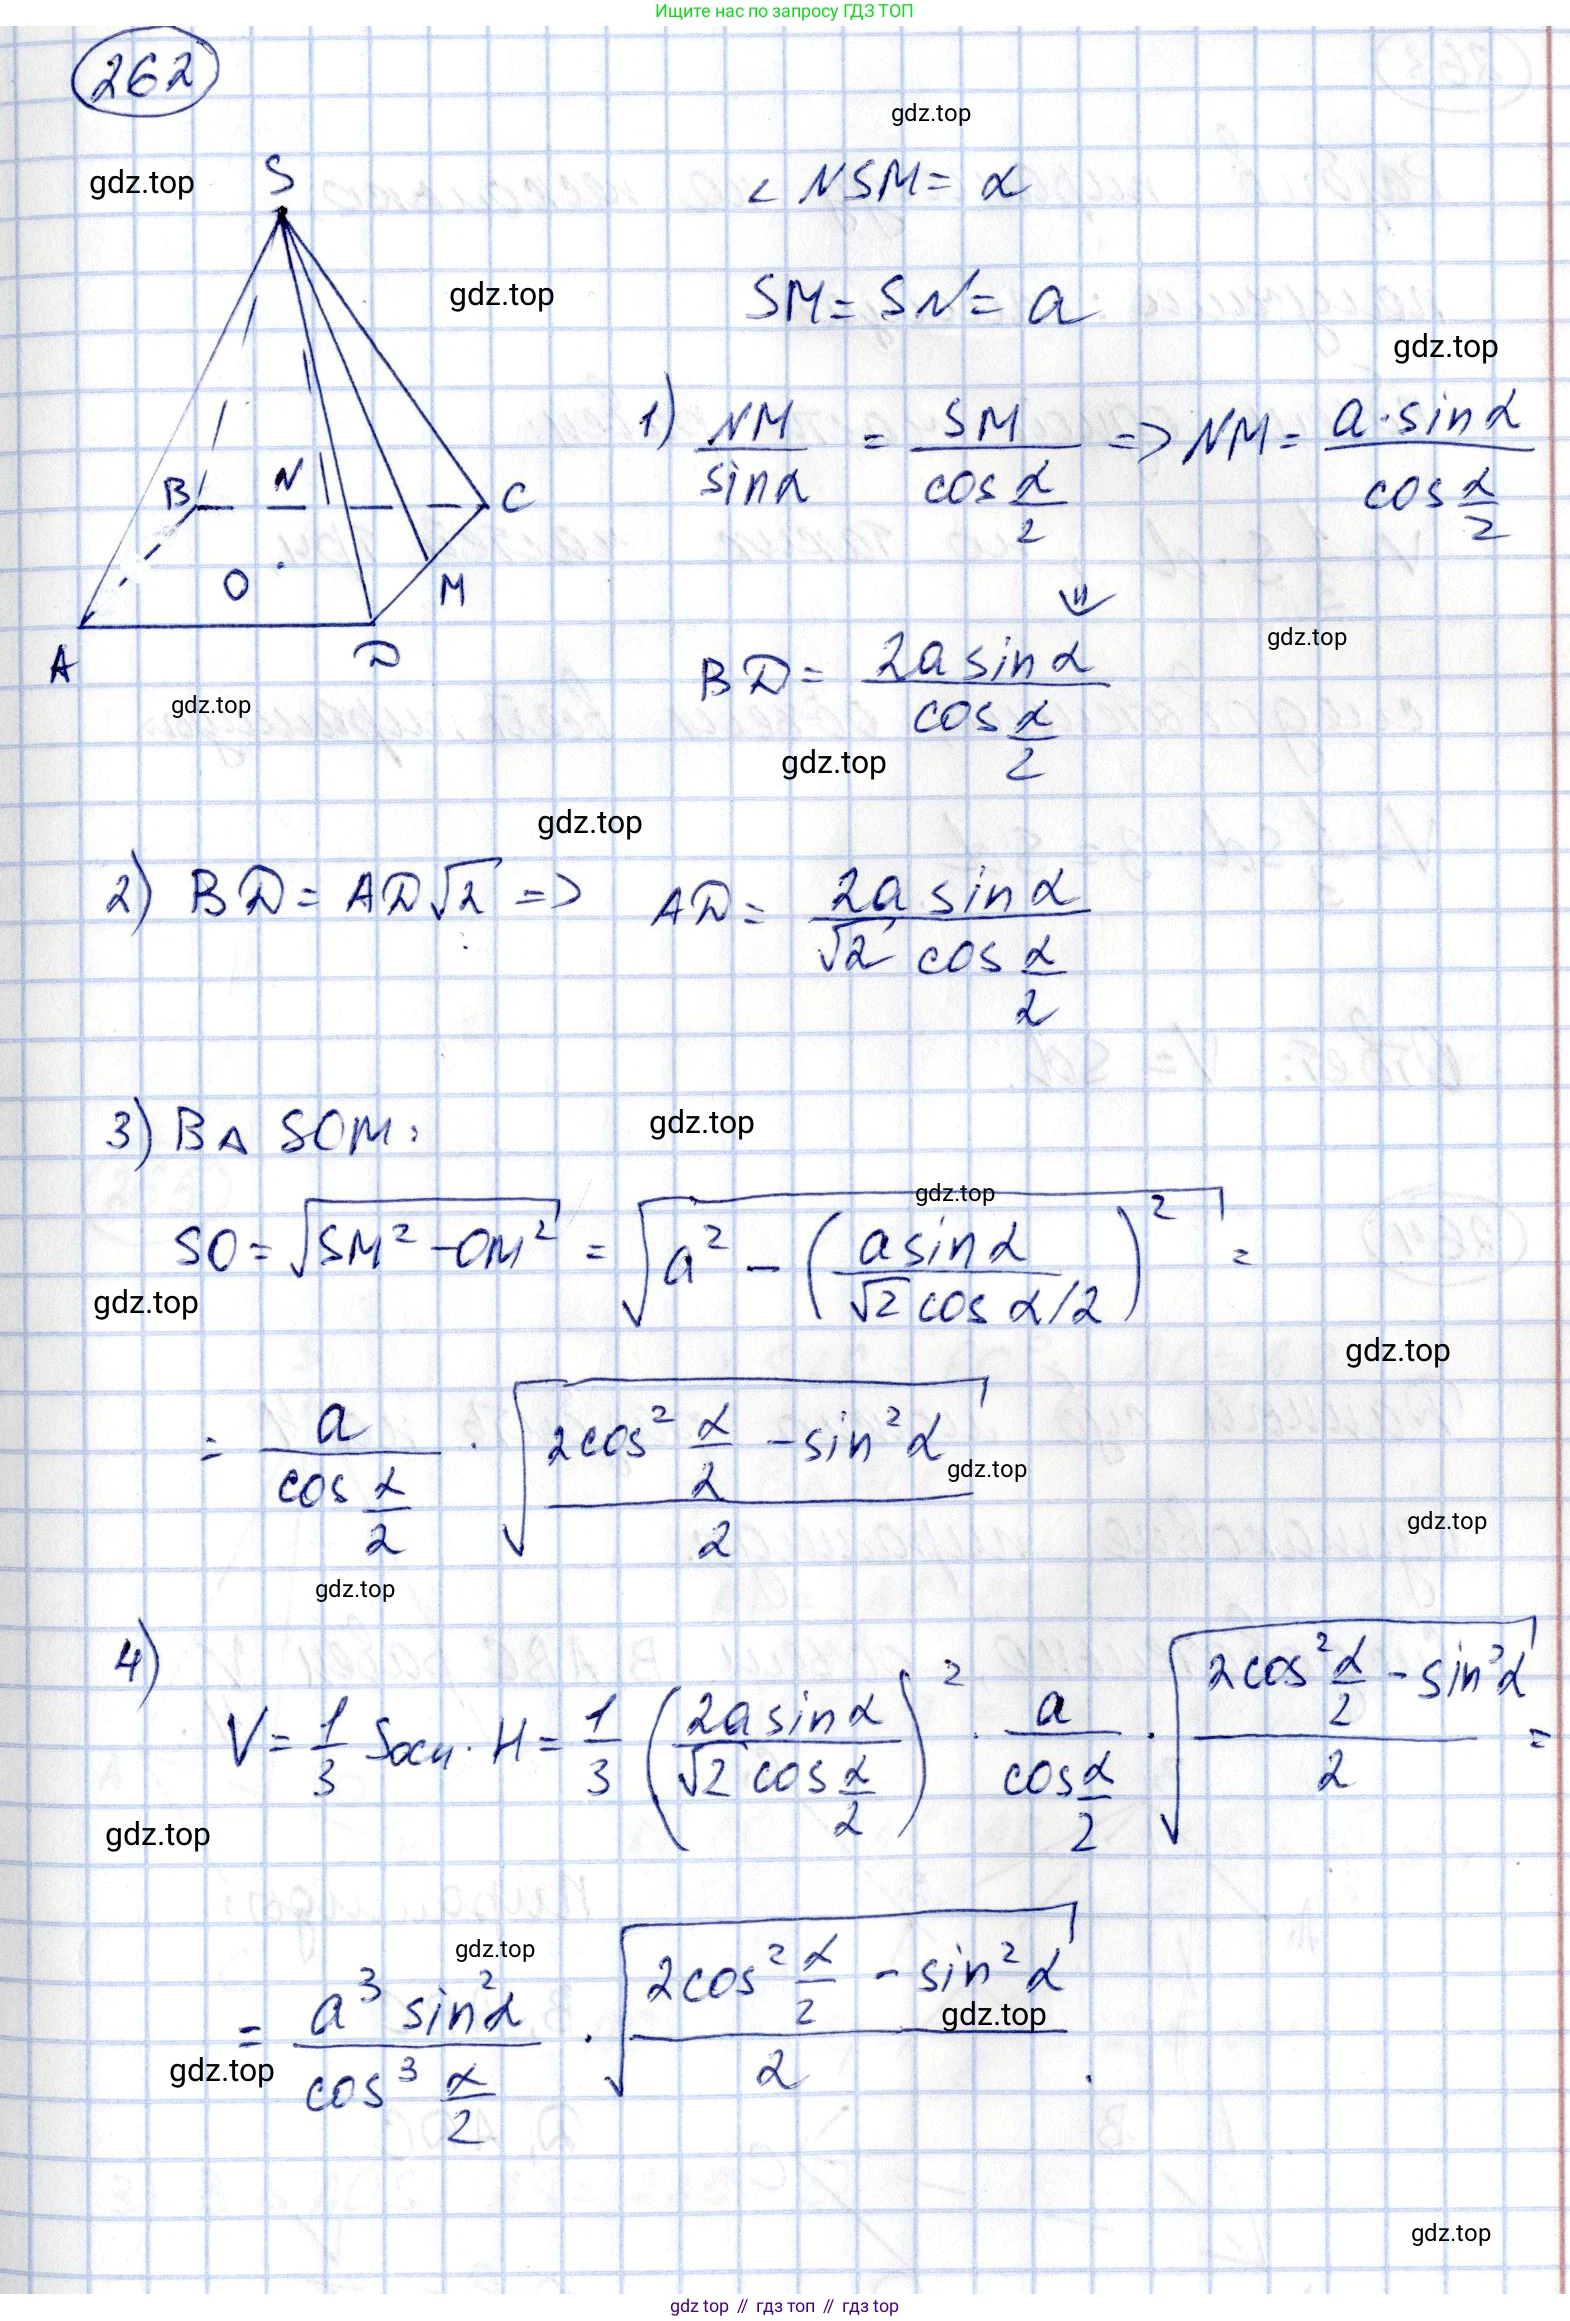 Ищите нас по запросу ГДЗ ТОП
262
gdz.top
gdz.top
S
∠ NSM = α
gdz.top
SM = SN = a
gdz.top
1) NM/sinα = SM/cos α/2 => NM = a·sinα/cos α/2
B N C
O M
A D
gdz.top
⇓
gdz.top
BD = 2a sinα/cos α/2
gdz.top
gdz.top
2) BD = AD√2 => AD = 2a sinα/√2 cos α/2
3) В △ SOM:
gdz.top
gdz.top
SO = √(SM² - OM²) = √(a² - (a sinα/√2 cos α/2)²) =
gdz.top
gdz.top
= a/cos α/2 · √((2cos² α/2 - sin²α)/2)
gdz.top
gdz.top
gdz.top
4)
V = 1/3 Sосн · H = 1/3 (2a sinα/√2 cos α/2)² · a/cos α/2 · √((2cos² α/2 - sin²α)/2) =
gdz.top
gdz.top
= a³ sin²α/cos³ α/2 · √((2cos² α/2 - sin²α)/2).
gdz.top
gdz.top
gdz.top
gdz top // гдз топ // гдз top